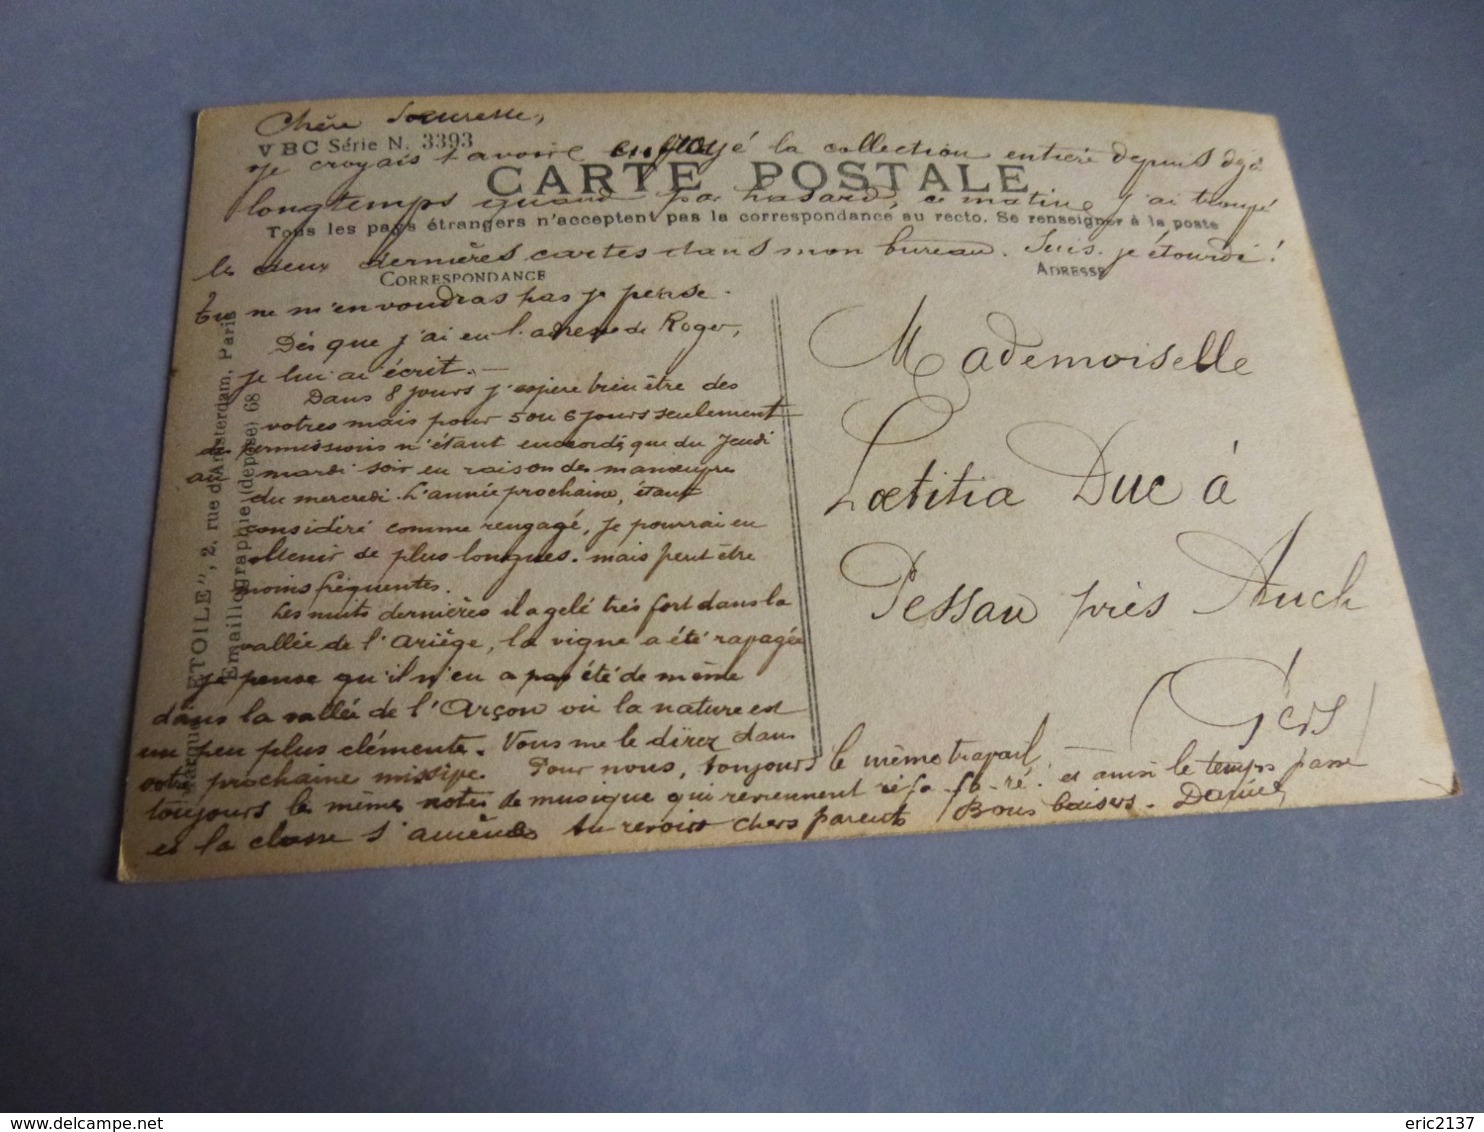 Chère Soeurette,
VBC Série N. 3393
je croyais t'avoir envoyé la collection entière depuis déjà
CARTE POSTALE
longtemps quand par hasard, ce matin, j'ai trouvé
Tous les pays étrangers n'acceptent pas la correspondance au recto. Se renseigner à la poste
les deux dernières cartes dans mon bureau. Suis-je étourdi!
CORRESPONDANCE
ADRESSE
Tu ne m'en voudras pas je pense.
Dès que j'ai eu l'adresse de Roger,
je lui ai écrit.
Dans 8 jours j'espère bien être des
votres mais pour 5 ou 6 jours seulement
les permissions n'étant accordées que du Jeudi
au mardi soir en raison des manœuvres
du mercredi. L'année prochaine, étant
considéré comme rengagé, je pourrai en
obtenir de plus longues. mais peut être
moins fréquentes.
Les nuits dernières il a gelé très fort dans la
vallée de l'Ariège, la vigne a été rapagée
je pense qu'il n'en a pas été de même
dans la vallée de l'Arçon où la nature est
un peu plus clémente. Vous me le direz dans
votre prochaine missive. Pour nous, toujours le même travail,
toujours les mêmes notes de musique qui reviennent ré. fa. fa. ré. et ainsi le temps passe
et la classe s'amène. Au revoir chers parents Bons baisers. Daniel
Mademoiselle
Lœtitia Duc à
Pessau près Auch
(Gers)
Marque "ETOILE", 2, rue d'Amsterdam, Paris
Emaillographie (déposé) 68
eric2137